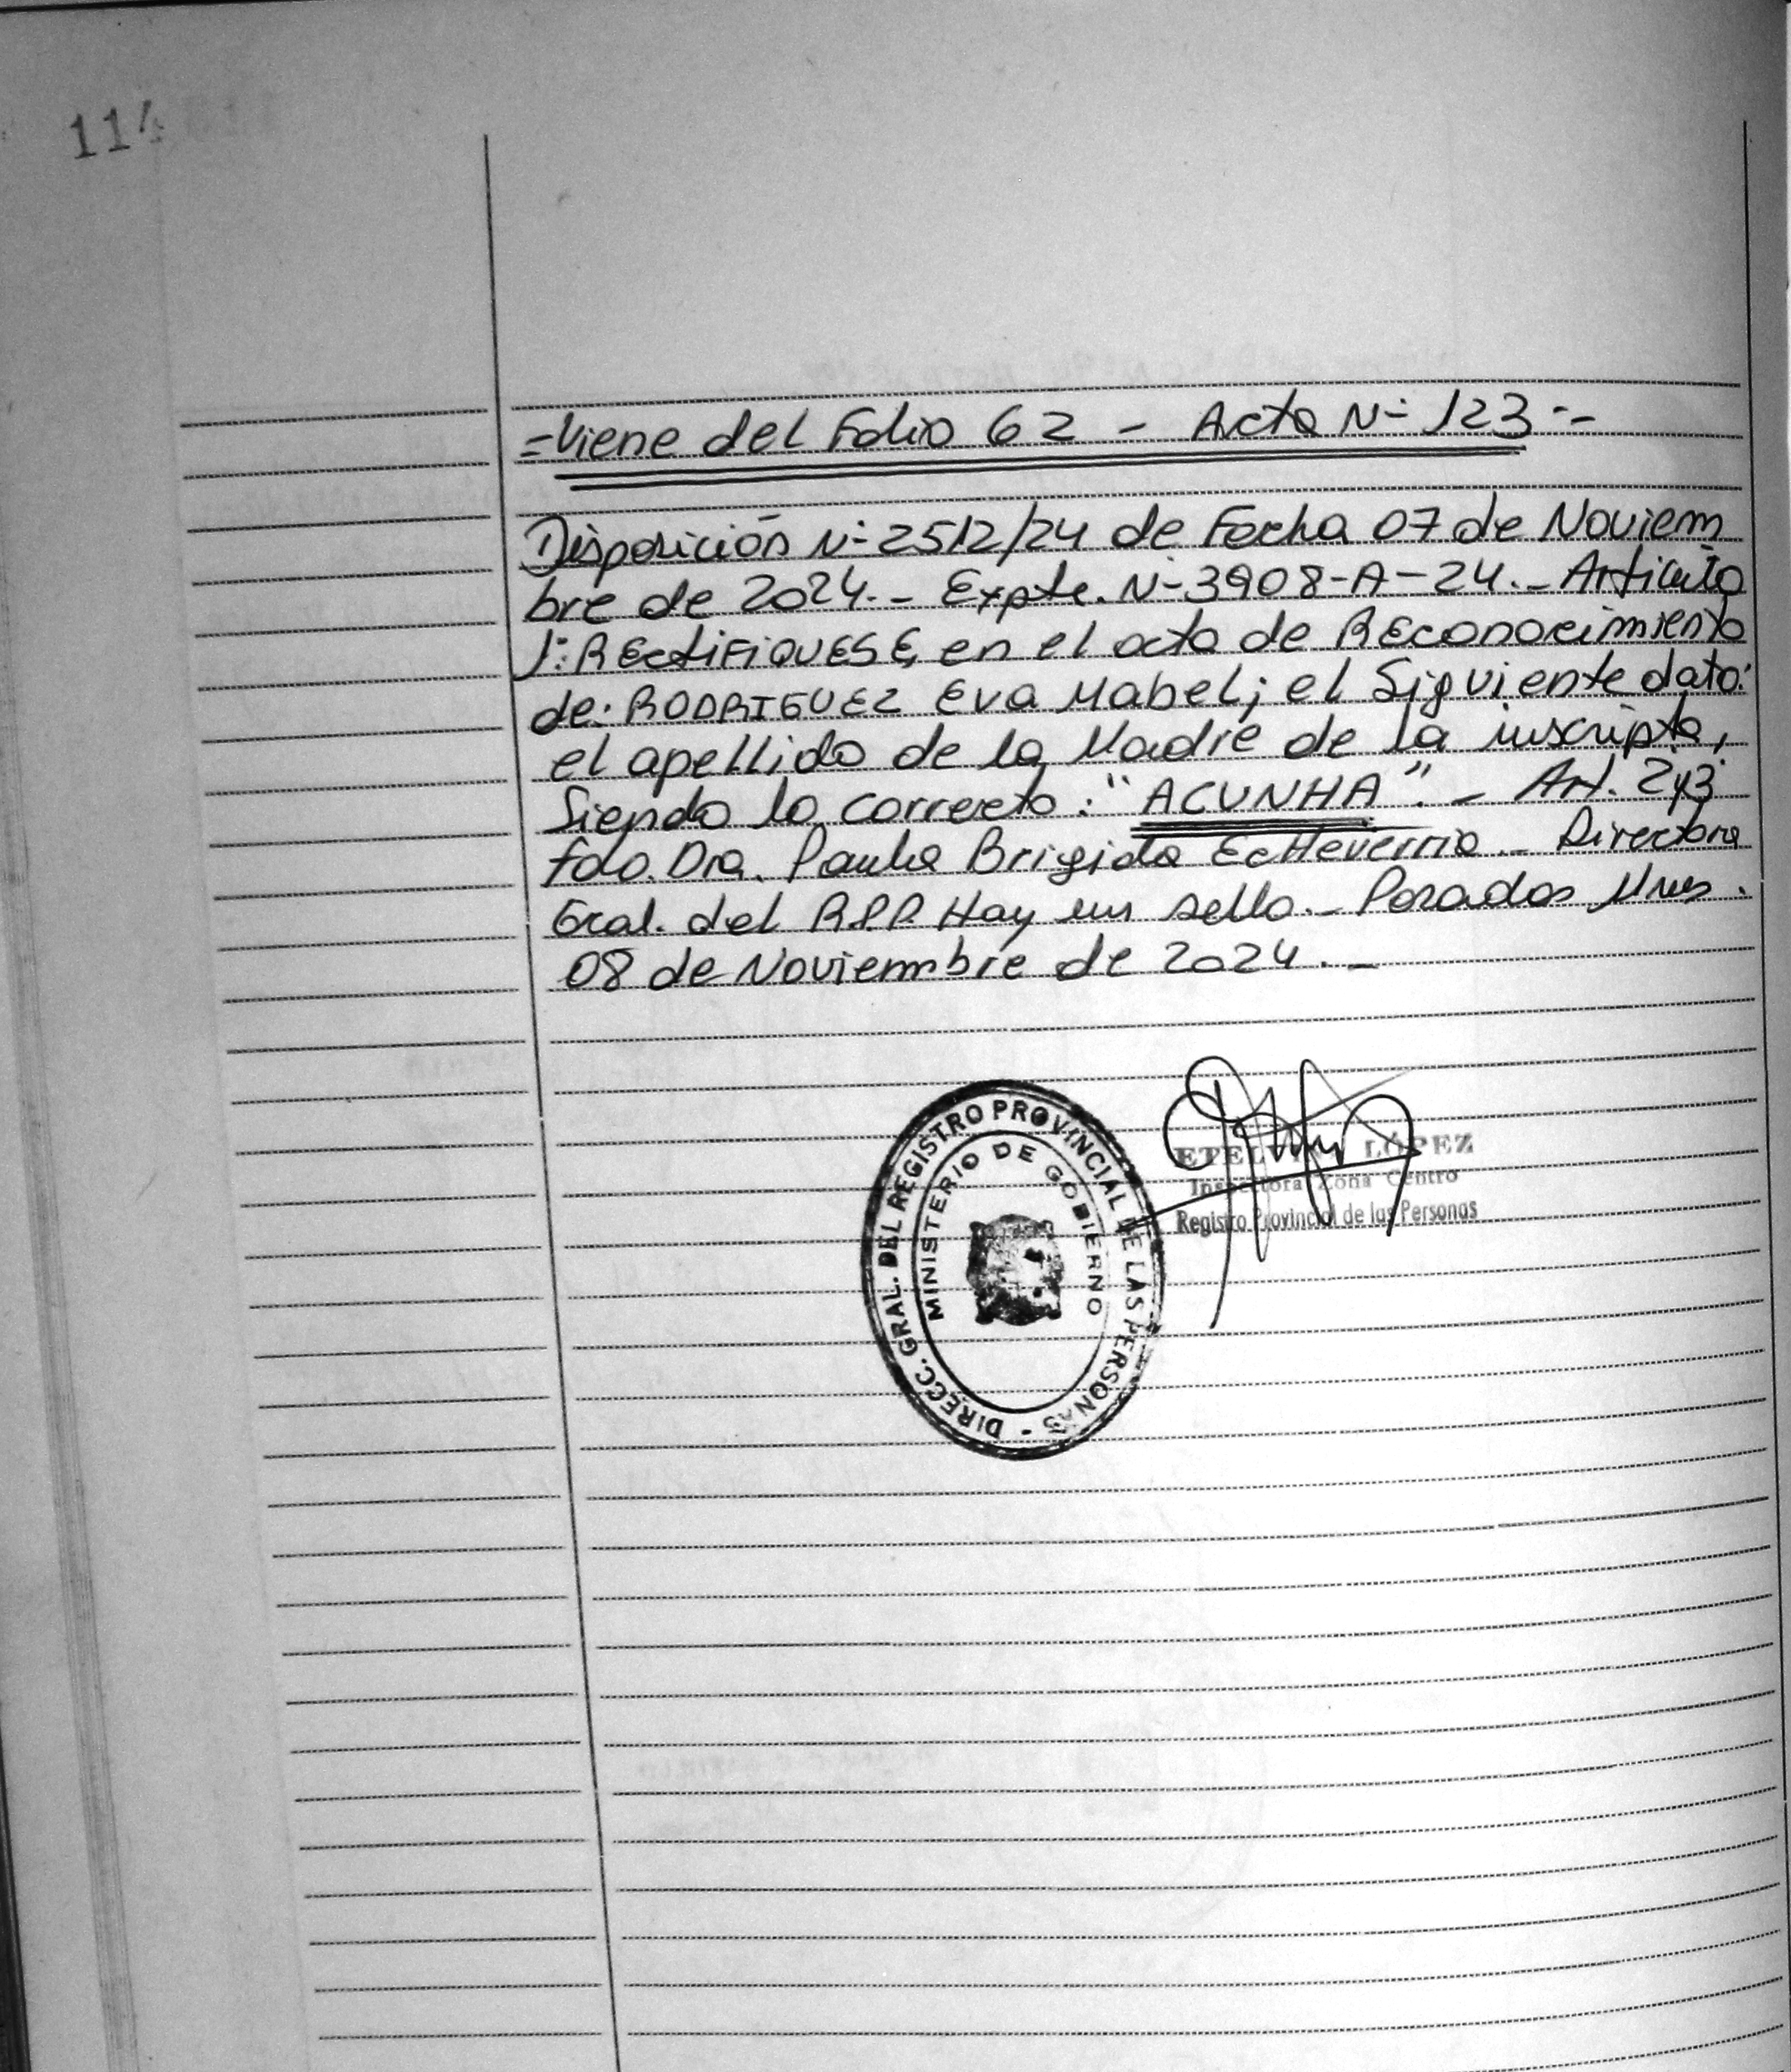 114
=Viene del Folio 62 - Acta N- 123.-
Disposición N- 2512/24 de Fecha 07 de Noviem
bre de 2024.- Expte. N- 3908-A-24.- Articulo
1: RECTIFIQUESE, en el acta de REconocimiento
de: RODRIGUEZ Eva Mabel; el Siguiente dato:
el apellido de la Madre de la inscripta,
Siendo lo correcto: "ACUNHA".- Art. 2y3
fdo. Dra. Paula Brigida Echeverria.- Directora
Gral. del R.P.P Hay un sello.- Posadas Mnes.
08 de Noviembre de 2024.-
DIRECC. GRAL. DEL REGISTRO PROVINCIAL DE LAS PERSONAS -
MINISTERIO DE GOBIERNO
LÓPEZ
Inspectora Zona Centro
Registro Provincial de las Personas